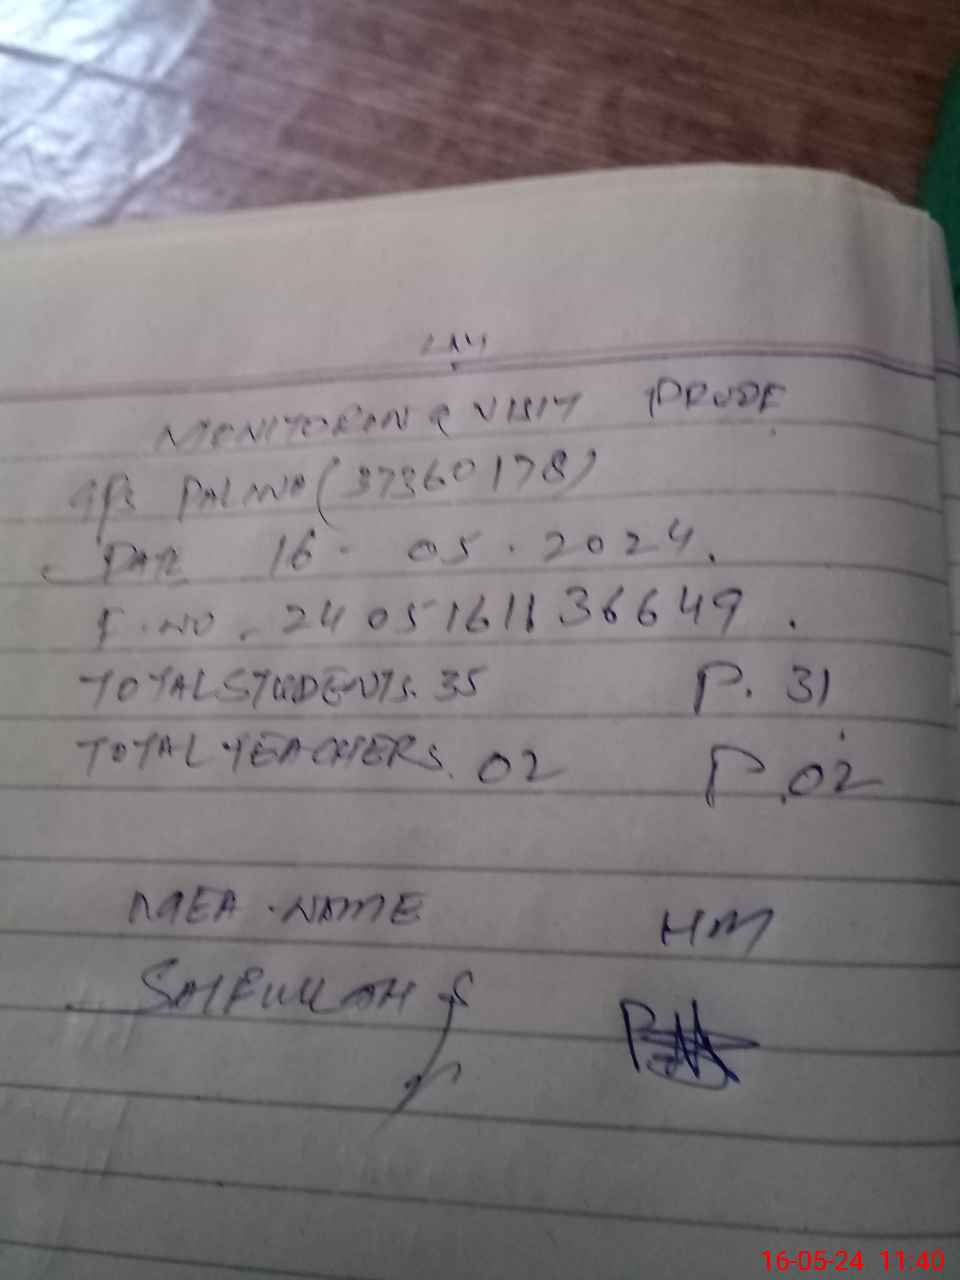 MONITORING VISIT PROOF
GPS PALMA (37360178)
DATE 16 - 05 - 2024.
F. NO. 24051611 36649.
TOTAL STUDENTS. 35 P. 31
TOTAL TEACHERS. 02 P. 02
NAME HM
SAIFULLAH
16-05-24 11:40